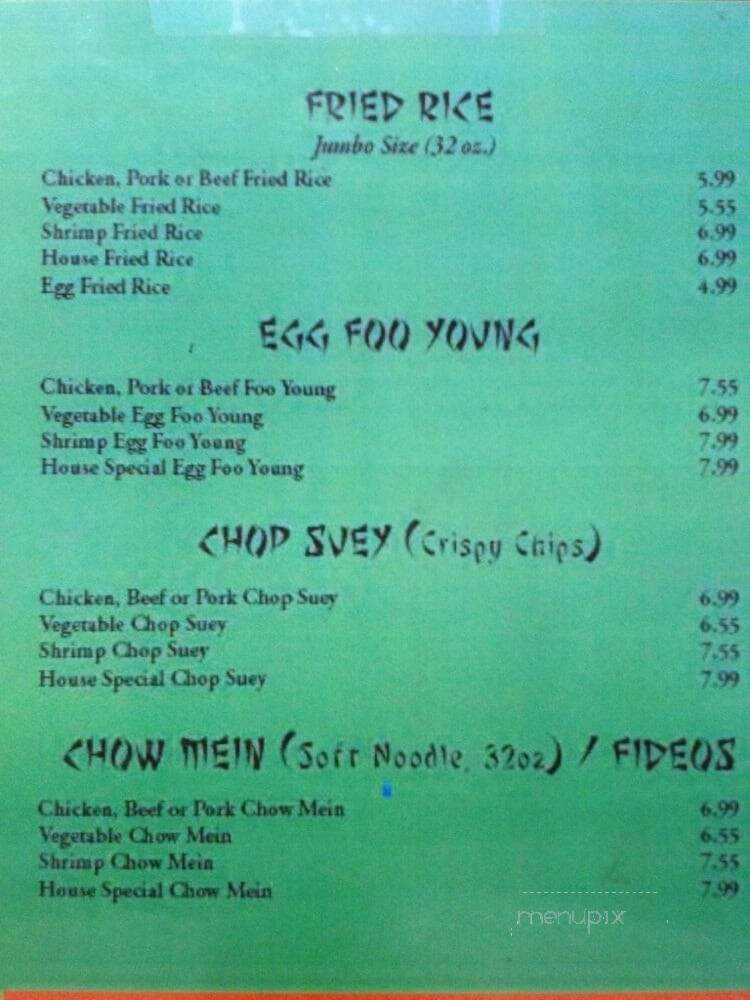 FRIED RICE
Jumbo Size (32 oz.)
Chicken, Pork or Beef Fried Rice 5.99
Vegetable Fried Rice 5.55
Shrimp Fried Rice 6.99
House Fried Rice 6.99
Egg Fried Rice 4.99
EGG FOO YOUNG
Chicken, Pork or Beef Foo Young 7.55
Vegetable Egg Foo Young 6.99
Shrimp Egg Foo Young 7.99
House Special Egg Foo Young 7.99
CHOP SUEY (Crispy Chips)
Chicken, Beef or Pork Chop Suey 6.99
Vegetable Chop Suey 6.55
Shrimp Chop Suey 7.55
House Special Chop Suey 7.99
CHOW MEIN (Soft Noodle, 32oz) / FIDEOS
Chicken, Beef or Pork Chow Mein 6.99
Vegetable Chow Mein 6.55
Shrimp Chow Mein 7.55
House Special Chow Mein 7.99
menupix